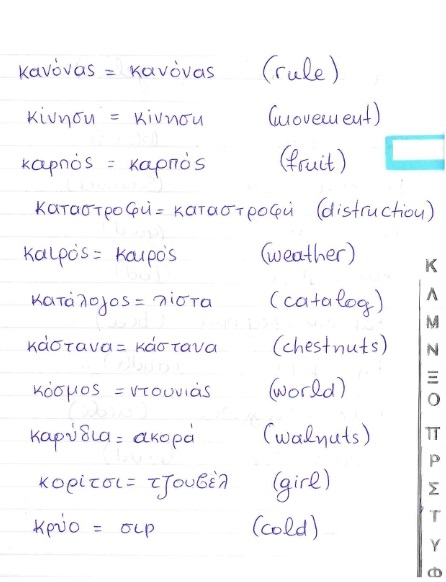 κανόνας = κανόνας (rule)
κίνηση = κίνηση (movement)
καρπός = καρπός (fruit)
καταστροφή = καταστροφή (distruction)
καιρός = καιρός (weather)
κατάλογος = λίστα (catalog)
κάστανα = κάστανα (chestnuts)
κόσμος = ντουνιάς (world)
καρύδια = ακορά (walnuts)
κορίτσι = τζουβέλ (girl)
κρύο = σιρ (cold)
Κ
Λ
Μ
Ν
Ξ
Ο
Π
Ρ
Σ
Τ
Υ
Φ